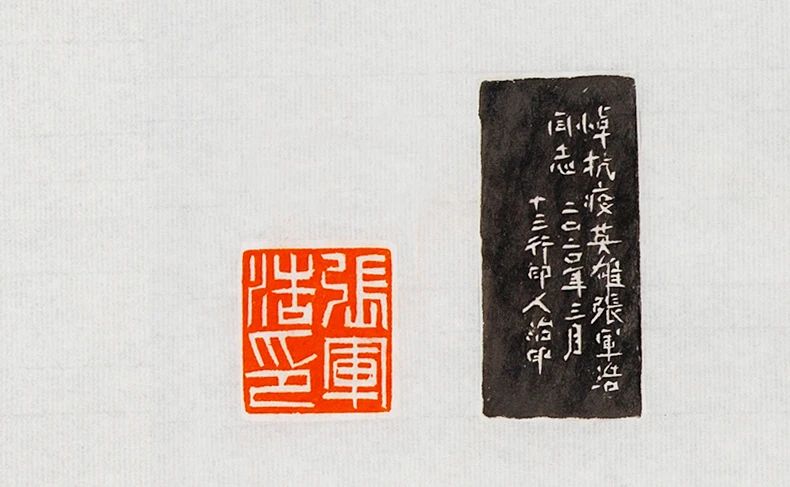 悼抗疫英雄張軍浩
同志 二〇二〇年三月
十三行印人治印
張軍
浩印